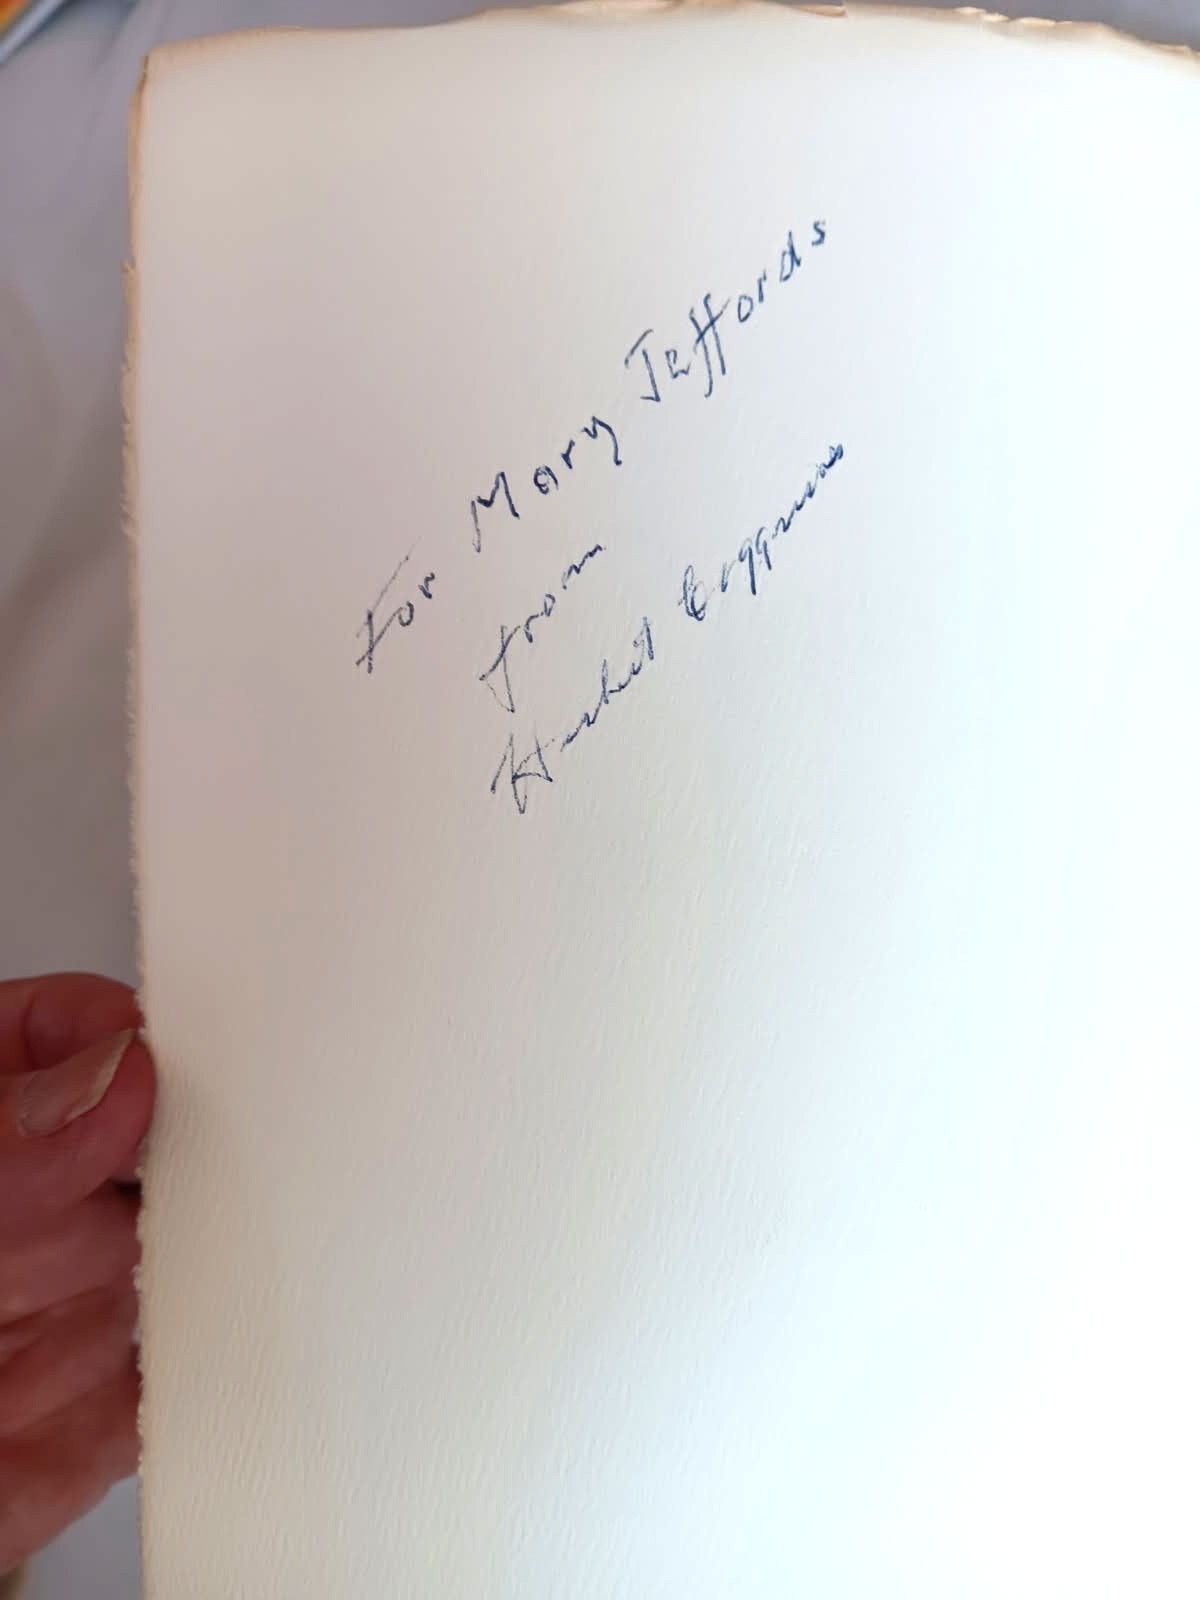 For Mary Jeffords
from
Herbert